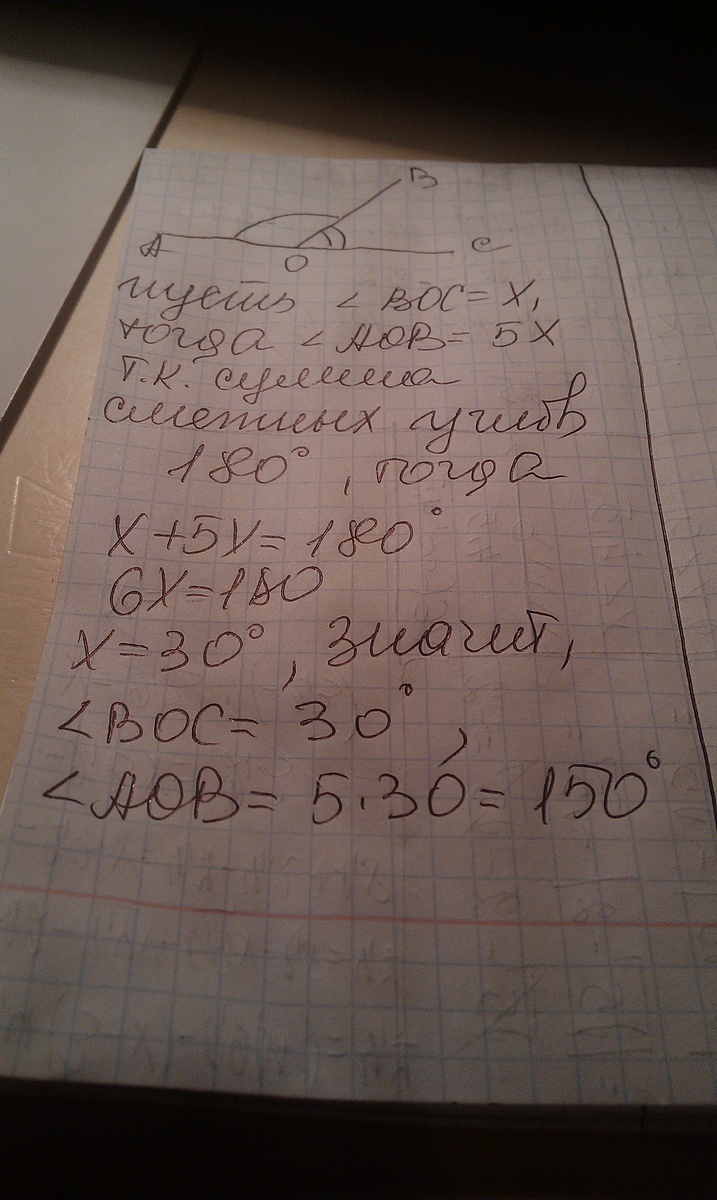 B
A O C
пусть ∠ BOC = X,
тогда ∠ AOB = 5X
т.к. сумма
смежных углов
180°, тогда
X+5X=180°
6X=180
X=30°, значит,
∠BOC= 30°,
∠AOB= 5·30=150°